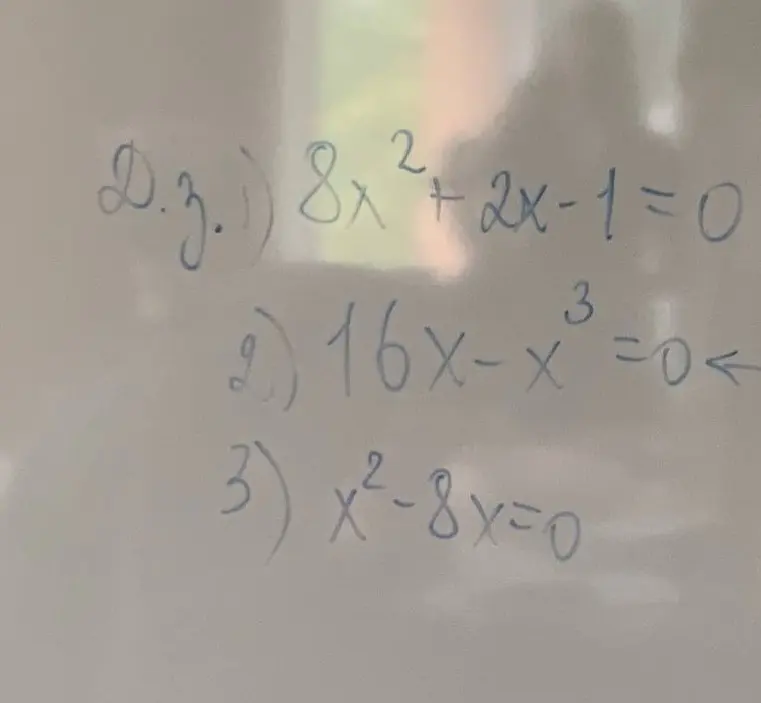 Д.з. 1) 8x² + 2x - 1 = 0
2) 16x - x³ = 0 ←
3) x² - 8x = 0